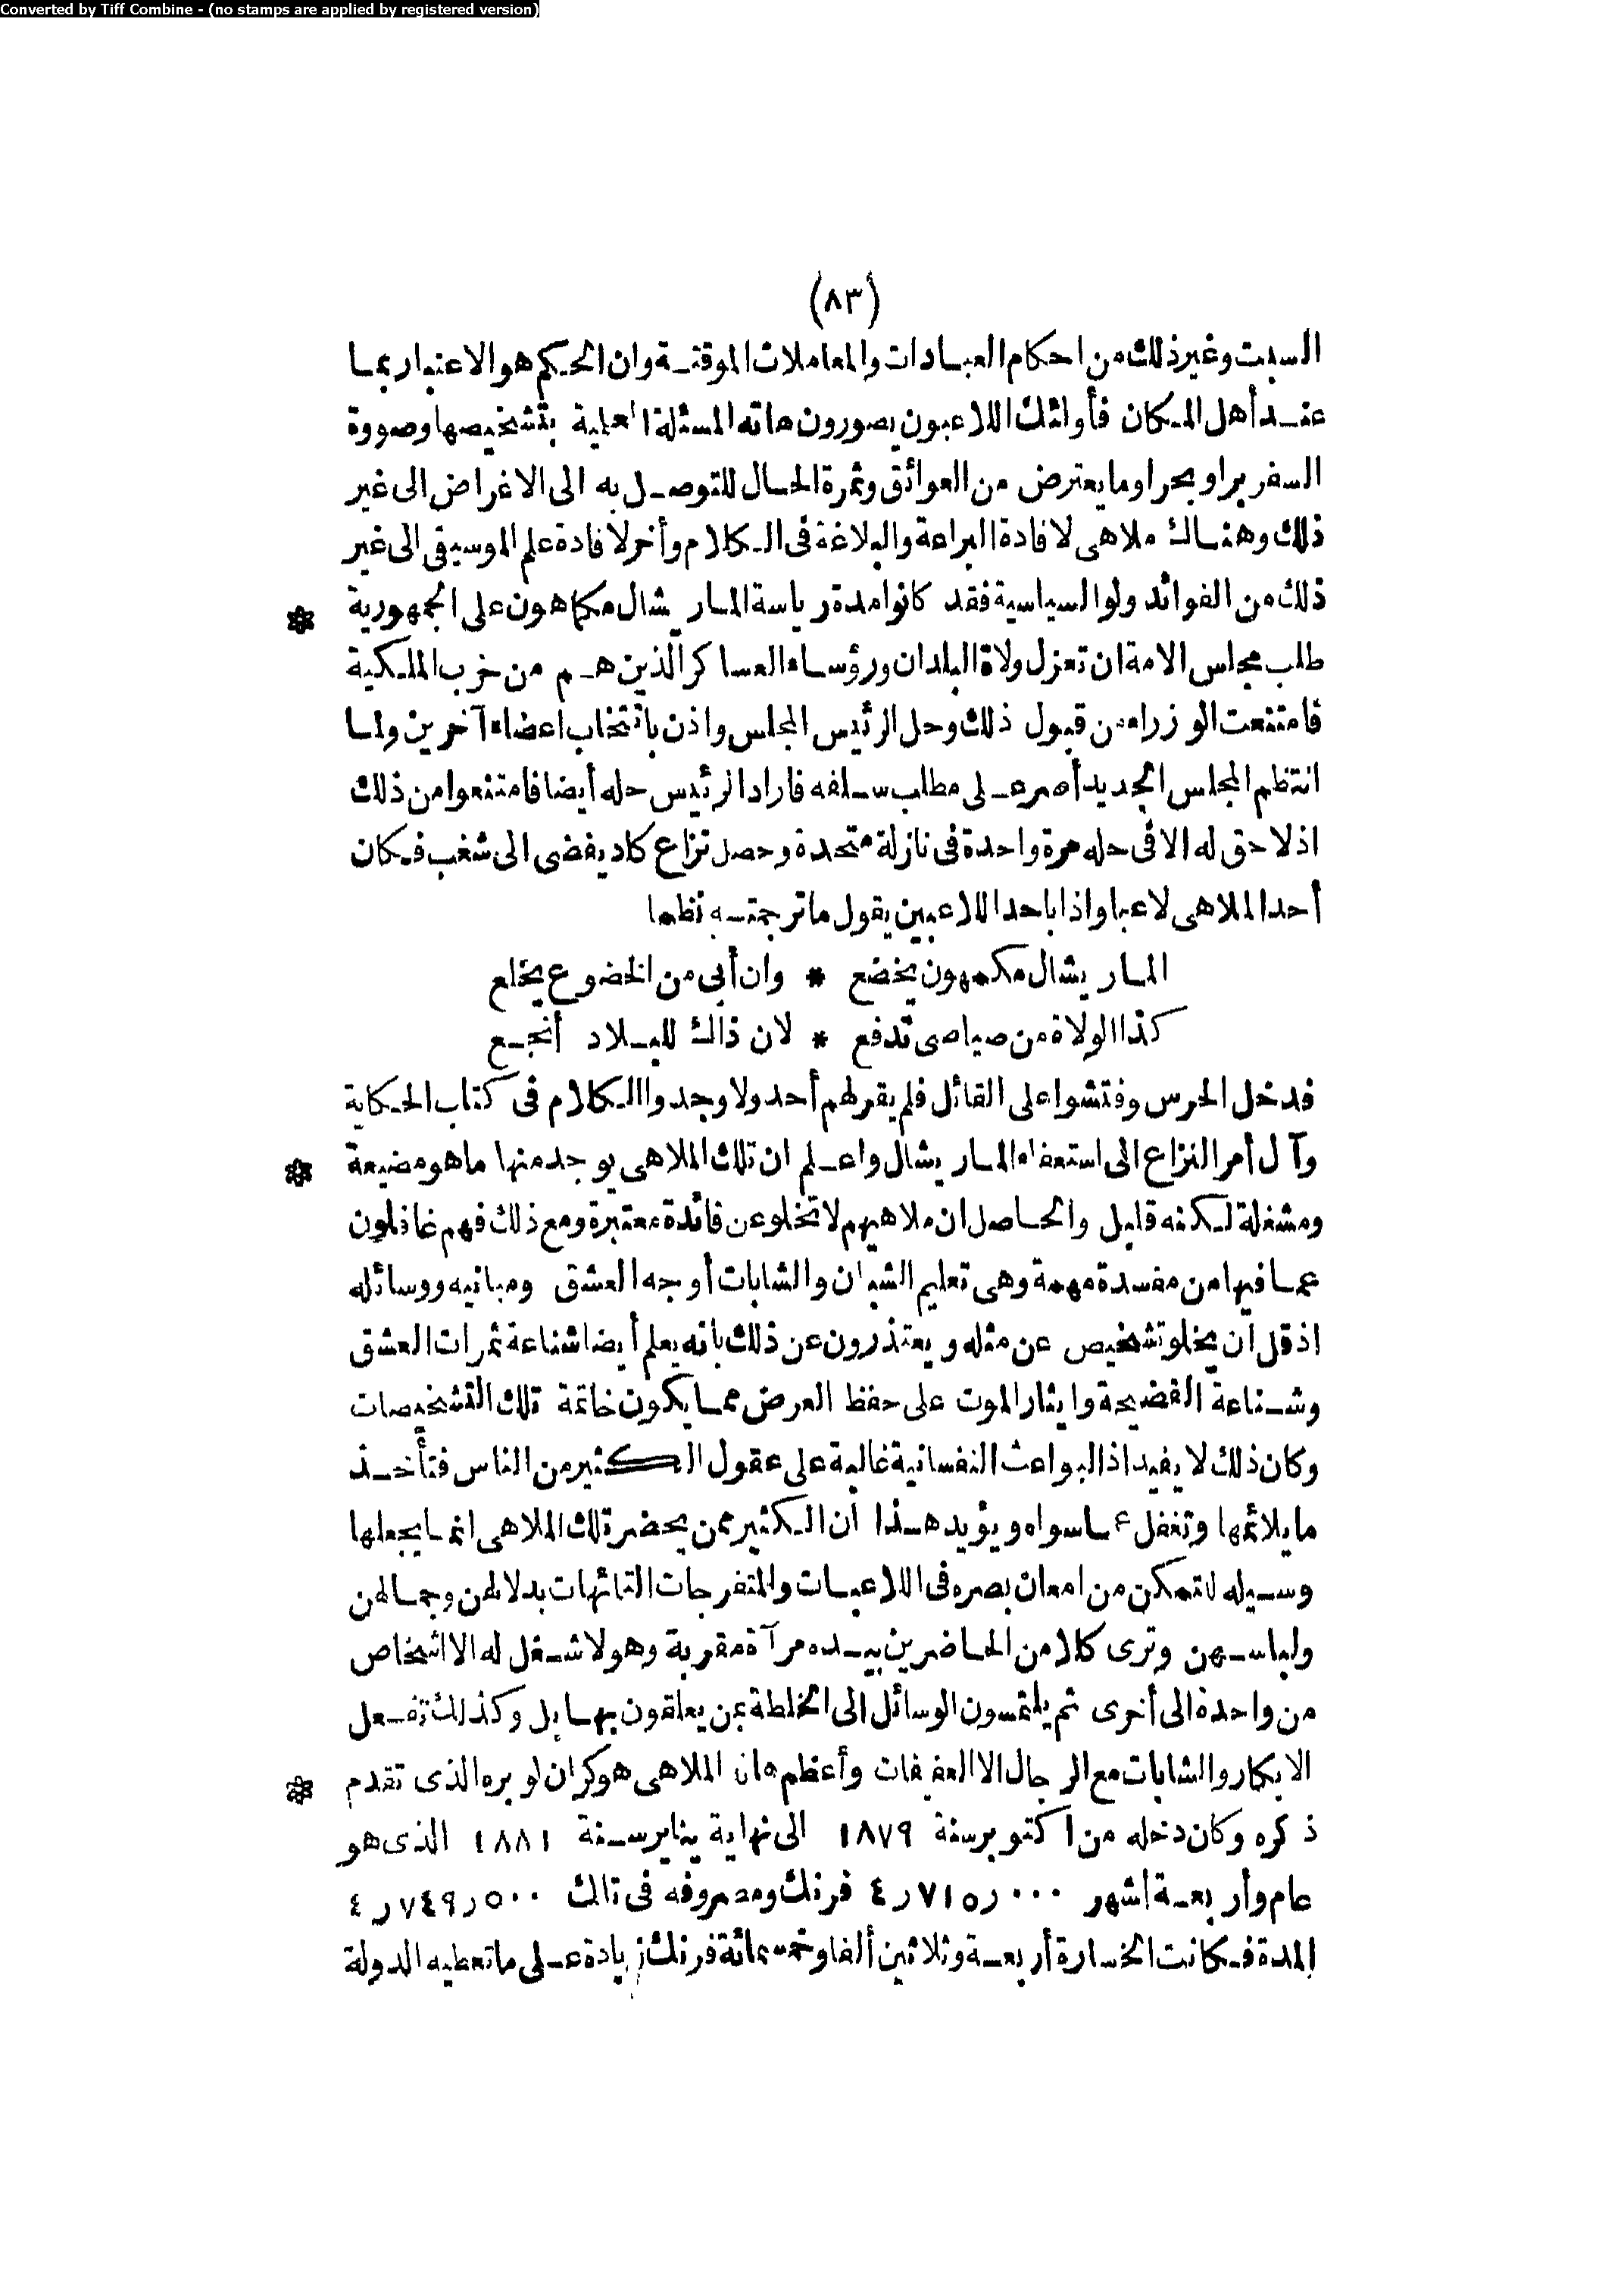 Converted by Tiff Combine - (no stamps are applied by registered version)
(٨٣)
السبت وغير ذلك من احكام العبادات والمعاملات الموقتة وان الحكم هو الاعتبار بما
عند أهل المكان فأولئك اللاعبون يصورون هاته المسئلة العلمية بتشخيصها وصووة
السفر برا وبحرا وما يعترض من العوائق وثمرة الحال للتوصل به الى الاغراض الى غير
ذلك وهناك ملاهى لافادة البراعة والبلاغة فى الكلام وأخر لافادة علم الموسيقى الى غير
ذلك من الفوائد ولو السياسية فقد كانوا مدة رياسة المار يشال مكماهون على الجمهورية *
طلب مجلس الامة ان تعزل ولاة البلدان ورؤساء العساكر الذين هم من خرب الملكية
فامتنعت الوزراء من قبول ذلك وحل الرئيس المجلس واذن بانتخاب اعضاء آخرين ولما
انتظم المجلس الجديد أصر على مطلب سلفه فاراد الرئيس حله أيضا فامتنعوا من ذلك
اذ لا حق له الا فى حله مرة واحدة فى نازلة متحدة وحصل نزاع كاد يفضى الى شغب فكان
أحد الملاهى لاعبا واذا باحد اللاعبين يقول ما ترجمته نظما
المار يشال مكمهون يخضع * وان أبى من الخضوع يخلع
كذا الولاة من صياصى تدفع * لان ذاك للبلاد أنجع
فدخل الحرس وفتشوا على القائل فلم يقر لهم أحد ولا وجدوا الكلام فى كتاب الحكاية
وآل أمر النزاع الى استعفاء المار يشال واعلم ان تلك الملاهى يوجد منها ما هو مضيعة *
ومشغلة لكنه قليل والحاصل ان ملاهيهم لا تخلو عن فائدة معتبرة ومع ذلك فهم غافلون
عما فيها من مفسدة مهمة وهى تعليم الشبان والشابات أوجه العشق ومبانيه ووسائله
اذ قل ان يخلو تشخيص عن مثله ويعتذرون عن ذلك بانه يعلم أيضا شناعة ثمرات العشق
وشناعة الفضيحة وايثار الموت على حفظ العرض مما يكون خاتمة تلك التشخيصات
وكان ذلك لا يفيد اذ البواعث النفسانية غالبة على عقول الكثير من الناس فتأخذ
ما يلائمها وتغفل عما سواه ويؤيد هذا ان الكثير ممن يحضر تلك الملاهى انما يجعلها
وسيله للتمكن من امعان بصره فى اللاعبات والمتفرجات التائهات بدلالهن وجمالهن
ولباسهن وترى كلا من الحاضرين بيده مرآة مقربة وهو لا شغل له الا اشخاص
من واحدة الى أخرى ثم يلتمسون الوسائل الى الخلطة بمن يعلقون بها بل وكذلك تفعل
الابكار والشابات مع الرجال الا العفيفات وأعظم الملاهى هو كران لوبره الذى تقدم *
ذكره وكان دخله من اكتوبر سنة ١٨٧٩ الى نهاية يناير سنة ١٨٨١ الذى هو
عام وأربعة اشهر ٤ر٧١٥ر٠٠٠ فرنك ومصروفه فى تلك ٤ر٧٤٩ر٥٠٠
المدة فكانت الخسارة أربعة وثلاثين ألفا وخمسمائة فرنك زيادة على ما تعطيه الدولة